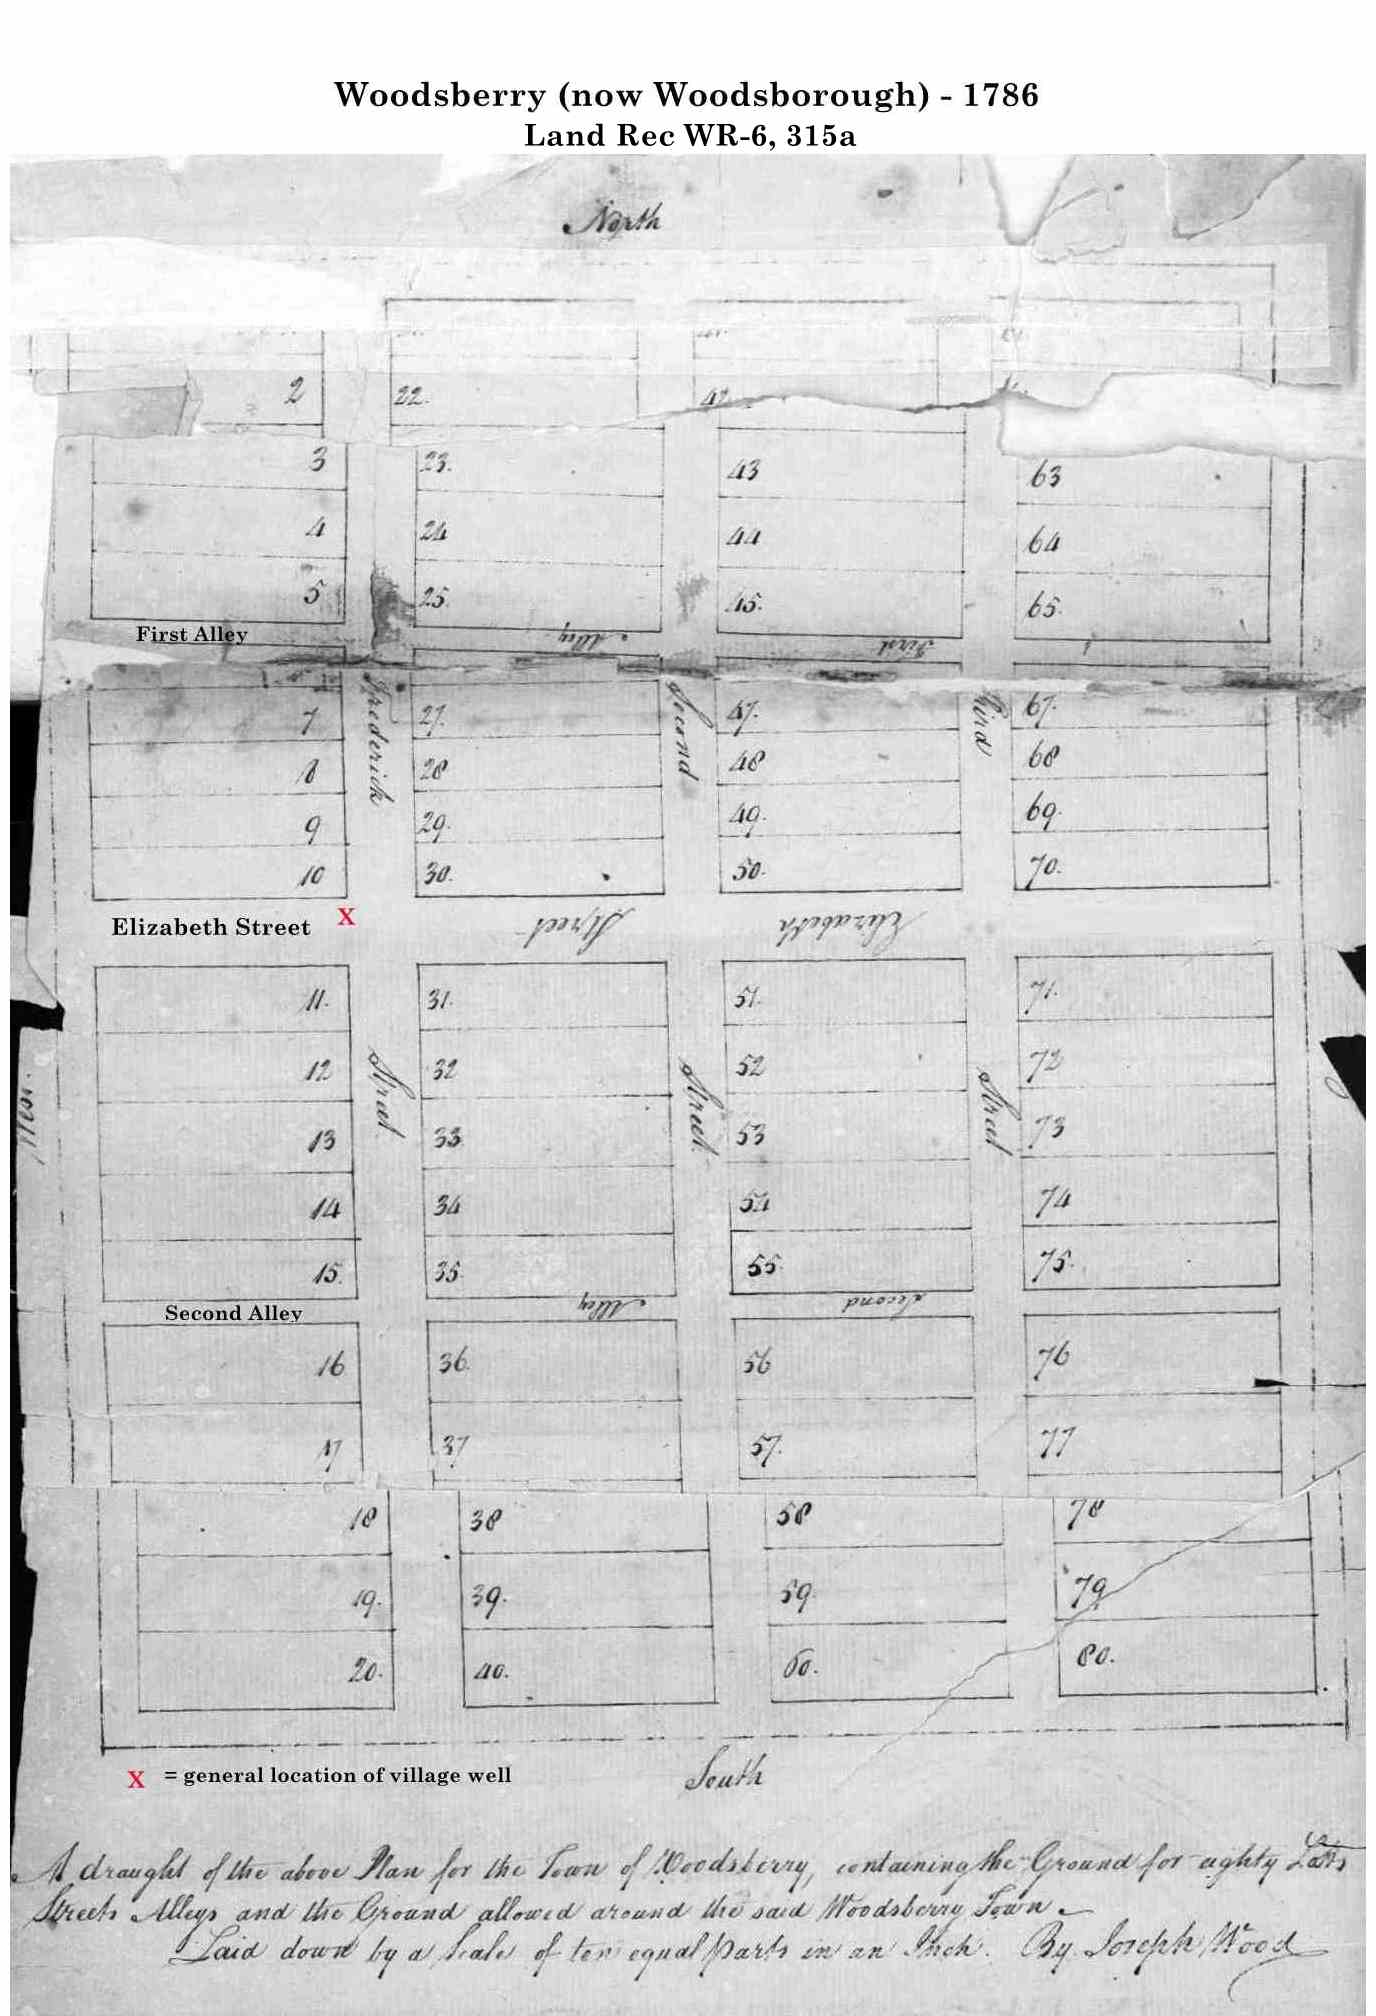 Woodsberry (now Woodsborough) - 1786
Land Rec WR-6, 315a
North
2 22. 42
3 23. 43 63
4 24 44 64
5 25. 45. 65.
First Alley Alley First
7 27. 47. 67.
Frederick Second Third
8 28 48 68
9 29. 49. 69.
10 30. 50. 70.
Elizabeth Street X Street Elizabeth
11. 31. 51. 71.
Street Street Street
12 32 52 72
West
13 33 53 73
14 34 54 74
15. 35. 55. 75.
Second Alley Alley Second
16 36. 56 76
17 37 57. 77
18 38 58 78
19. 39. 59. 79
20. 40. 60. 80.
South
X = general location of village well
A draught of the above Plan for the Town of Woodsberry, containing the Ground for eighty Lotts
Streets Alleys and the Ground allowed around the said Woodsberry Town.
Laid down by a Scale of ten equal parts in an Inch. By Joseph Wood